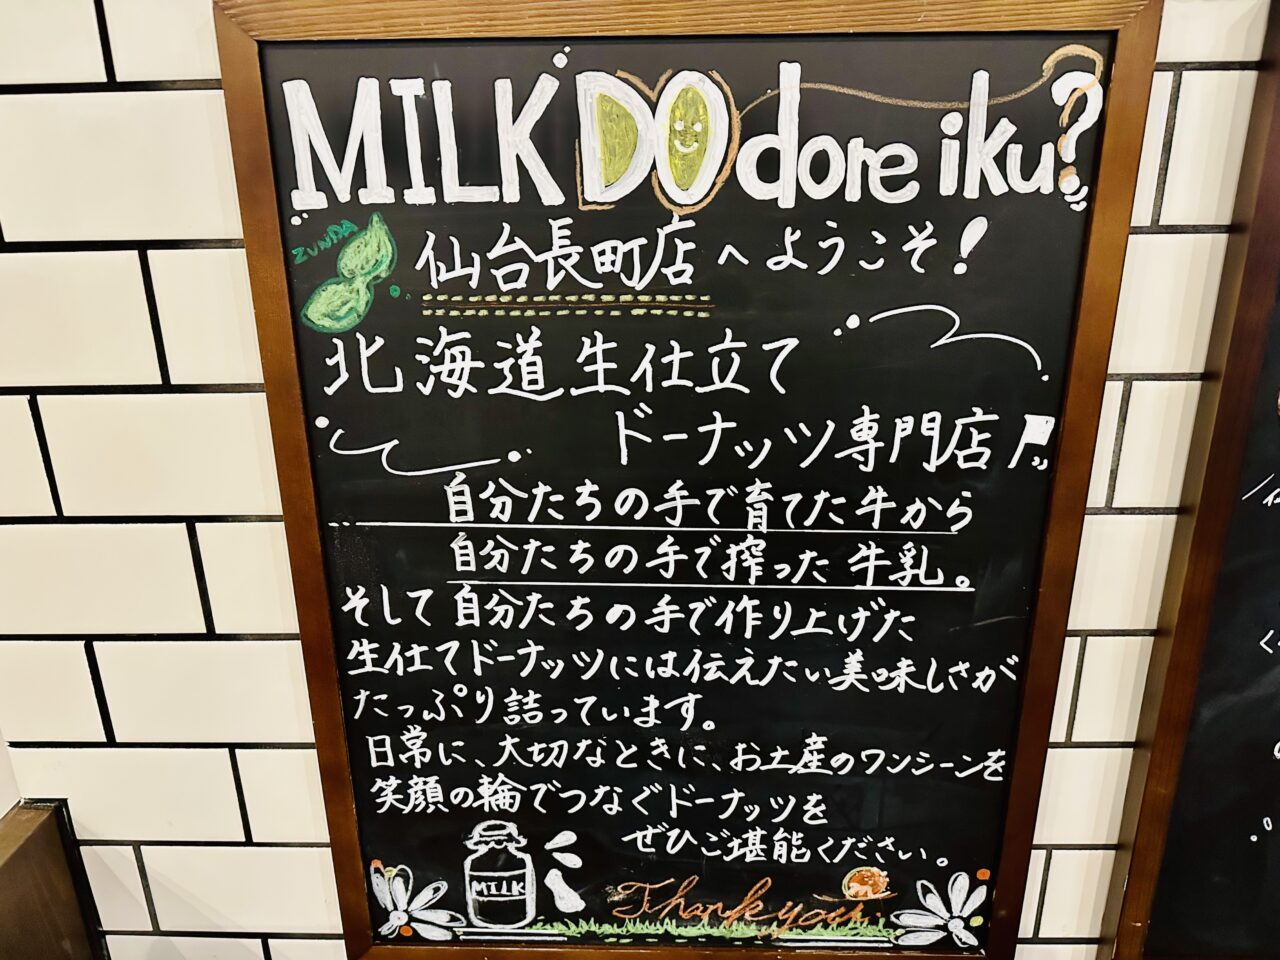 MILK DO dore iku?
ZUNDA
仙台長町店へようこそ!
北海道生仕立て
ドーナッツ専門店
自分たちの手で育てた牛から
自分たちの手で搾った牛乳。
そして自分たちの手で作り上げた
生仕立てドーナッツには伝えたい美味しさが
たっぷり詰っています。
日常に、大切なときに、お土産のワンシーンを
笑顔の輪でつなぐドーナッツを
ぜひご堪能ください。
MILK
Thank you